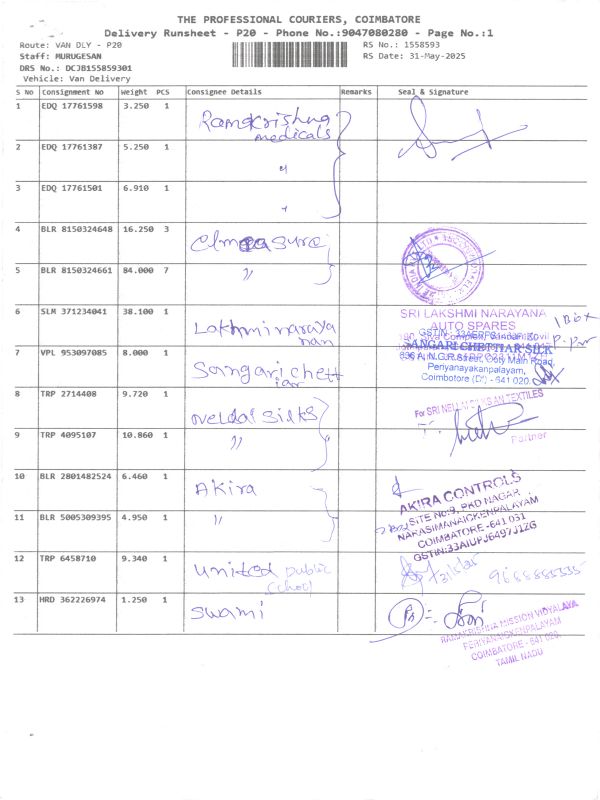 THE PROFESSIONAL COURIERS, COIMBATORE
Delivery Runsheet - P20 - Phone No.:9047080280 - Page No.:1
Route: VAN DLY - P20
RS No.: 1558593
Staff: MURUGESAN
RS Date: 31-May-2025
DRS No.: DCJB155859301
Vehicle: Van Delivery
S No Consignment No Weight PCS Consignee Details Remarks Seal & Signature
1 EDQ 17761598 3.250 1 Ramakrishna
medicals
2 EDQ 17761387 5.250 1 "
3 EDQ 17761501 6.910 1
4 BLR 8150324648 16.250 3
5 BLR 8150324661 84.000 7 "
6 SLM 371234041 38.100 1 Lakhminaraya
nan
SRI LAKSHMI NARAYANA
AUTO SPARES
1 Box
7 VPL 953097085 8.000 1 Sangari chett
iar
SANGARI CHETTIAR SILK
Periyanayakanpalayam,
Coimbatore (Dt) - 641 020.
8 TRP 2714408 9.720 1 silks
For SRI TEXTILES
9 TRP 4095107 10.860 1 "
Partner
10 BLR 2801482524 6.460 1 Akira
AKIRA CONTROLS
SITE No:9, PKD NAGAR
NARASIMANAICKENPALAYAM
COIMBATORE - 641 031
GSTIN:33AIUPJ6497J1ZG
11 BLR 5005309395 4.950 1 "
12 TRP 6458710 9.340 1 United public
School
31/5/25
13 HRD 362226974 1.250 1 Swami
RAMAKRISHNA MISSION VIDYALAYA
PERIYANAICKENPALAYAM
COIMBATORE - 641 020.
TAMIL NADU